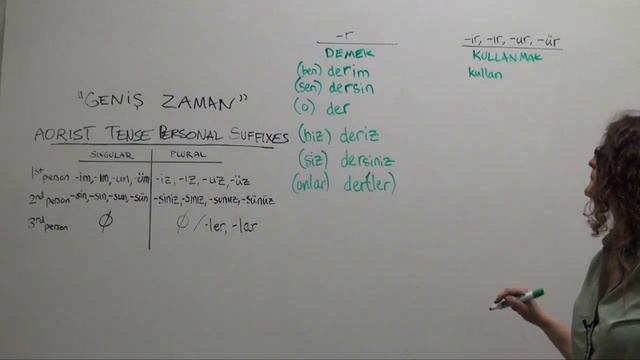 "GENİŞ ZAMAN"
AORIST TENSE PERSONAL SUFFIXES
SINGULAR PLURAL
1st person -im, -ım, -um, -üm -iz, -ız, -uz, -üz
2nd person -sin, -sın, -sun, -sün -siniz, -sınız, -sunuz, -sünüz
3rd person Ø Ø / -ler, -lar
-r
DEMEK
(ben) derim
(sen) dersin
(o) der
(biz) deriz
(siz) dersiniz
(onlar) der(ler)
-ir, -ır, -ur, -ür
KULLANMAK
kullan